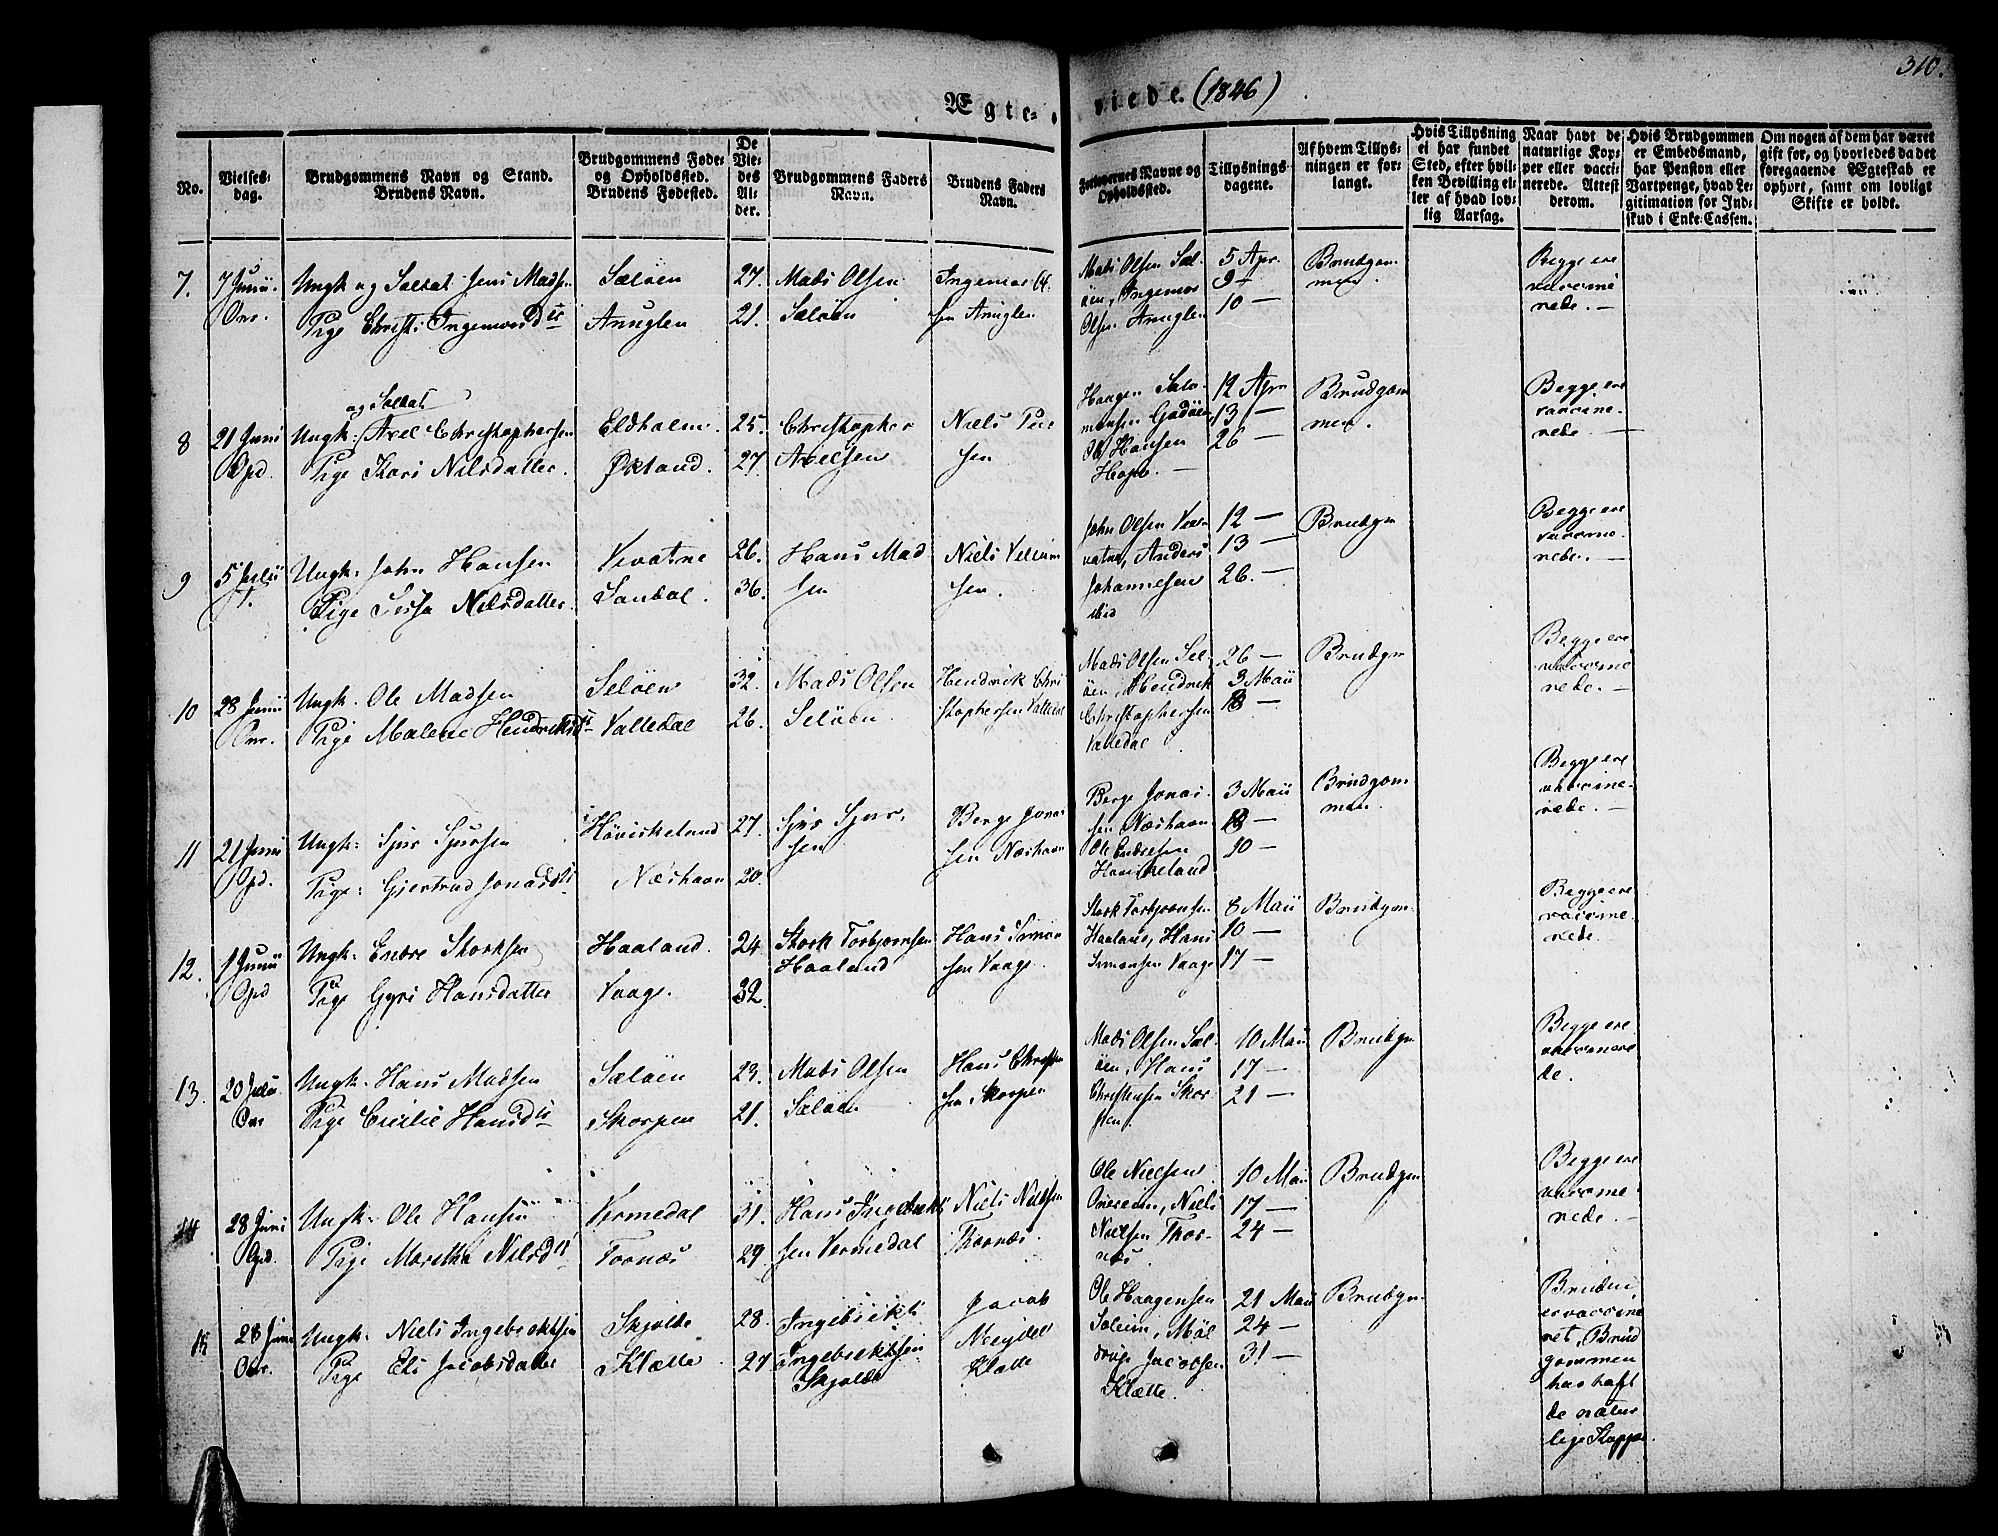 310.
Ægte-viede. (1846)
No.
Vielses-
dag.
Brudgommens Navn og Stand.
Brudens Navn.
Brudgommens Føde-
og Opholdssted.
Brudens Fødested.
De
Vie-
des
Al-
der.
Brudgommens Faders
Navn.
Brudens Faders
Navn.
Forlovernes Navne og
Opholdssted.
Tillysnings-
dagene.
Af hvem Tillys-
ningen er for-
langt.
Hvis Tillysning
ei har fundet
Sted, efter hvil-
ken Bevilling el-
ler af hvad lov-
lig Aarsag.
Naar havt de
naturlige Kop-
per eller vacci-
nerede. Attest
derom.
Hvis Brudgommen
er Embedsmand,
har Pension eller
Vartpenge, hvad Le-
gitimation for Ind-
skud i Enke-Cassen.
Om nogen af dem har været
gift før, og hvorledes da det
foregaaende Ægteskab er
ophørt, samt om lovligt
Skifte er holdt.
7.
7 Junii.
Ungk og Soldat Jens Madsen
Pige Christi Ingemorsdtr
Sæløen
Anuglen
27.
21.
Mads Olsen
Sæløen
Ingemor Ol-
sen Anuglen
Mads Olsen Sæl-
øen, Ingemor
Olsen Anuglen
5 Apr.
9 —
10 —
Brudgom
men.
Begge ere
vaccine
rede. —
8
21 Juni
Ungk: og Soldat Axel Christophersen
Pige Kari Nilsdatter.
Eldholm.
Økland.
25.
27
Christopher
Axelsen
Niels
sen
Haagen Salo-
monsen Godøen
Ole Hansen
12 Apr.
13 —
26 —
Brudgom
men.
Begge ere
vaccine-
rede —
9
5 Julii
Ungk: John Hansen
Pige Sissa Nilsdatter.
Kvatne
Sandal.
26.
36.
Hans Mad
sen
Niels Vellum
sen.
John Olsen
Anders
Johannesen
12 —
13 —
26. —
Brudgm
Begge ere
vaccine-
rede. —
10
28 Junii
Ungk. Ole Madsen
Pige Malene Hendriksdtr
Seløen
Valledal
32.
26.
Mads Olsen
Seløen
Hendrik Chri
stophersen Valledal
Mads Olsen Sel-
øen, Hendrik
Christophersen
Valledal
26 —
3 Maii
Brudgm
Begge ere
vaccine
rede. —
11
21 Juni
Ungk: Sjur Sjursen
Pige: Gjertrud Jonasdtr
Høviskeland
Næshavn
27.
20.
Sjur Sjur-
sen
Berge Jonas
sen Næshavn
Berge Jonas-
sen Næshavn
Ole Endresen
3 Maii
10 —
Brudgom
men.
Begge ere
vaccine-
rede. —
12.
1 Junii
Ungk: Endre Storksen
Pige Gyri Hansdatter
Haaland.
Vaage.
24.
32.
Stork Torbjørnsen
Haaland
Hans Simon
sen Vaage.
Stork Torbjørnsen
Haaland, Hans
Simonsen Vaage
8 Maii
10 —
17 —
Brudgm.
Begge ere
vaccine-
rede.
13.
20 Juli
Ungk. Hans Madsen
Pige Cicilie Hansdtr
Sæløen
Skorpen
23.
21.
Mads Olsen
Sæløen
Hans Christen
sen Skorpen
Mads Olsen Sæl-
øen, Hans
Christensen Skor-
pen.
10 Maii
17 —
21 —
Brudgm
Begge ere
vaccinere
de.
14
28 Juni
Ungk: Ole Hansen
Pige Maretha Nilsdtr
Vermedal
Tornæs
31.
29.
Hans Ingebrikt
sen Vermedal
Niels Nielsen
Thornæs.
Ole Nielsen
Niels
Nielsen Thor-
næs.
10 Maii
17 —
24 —
Brudgm
Begge ere
vaccine-
rede. —
15
28 Juni
Ungk: Niels Ingebriktsen
Pige Eli Jacobsdatter
Skjolde
Klætte
28.
27
Ingebrikt
Ingebriktsen
Skjolde
Jacob
Klætte
Ole Haagensen
Soleim,
Jacobsen
Klætte
21 Maii
24 —
31 —
Brudgm
Bruden
er vaccine
ret, Brud
gommen
har haft
de natur
lige Kopper.